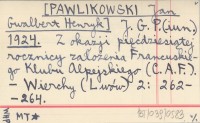 [PAWLIKOWSKI Jan
Gwalbert Henryk] J. G. P. (iun.)
1924. Z okazji pięćdziesiątej
rocznicy założenia Francuskie-
go Klubu Alpejskiego (C.A.F.).
– Wierchy (Lwów) 2: 262-
-264.
MT*